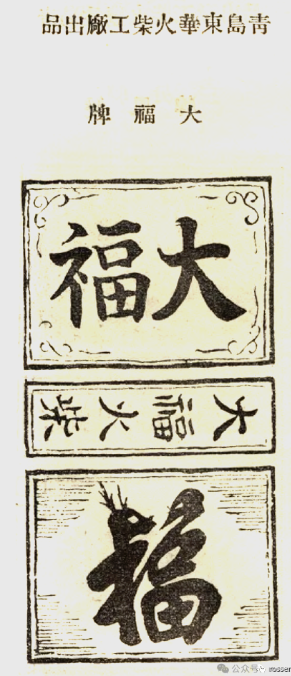 青島東華火柴工廠出品
大福牌
大福
大福火柴
福
公众号 rosser